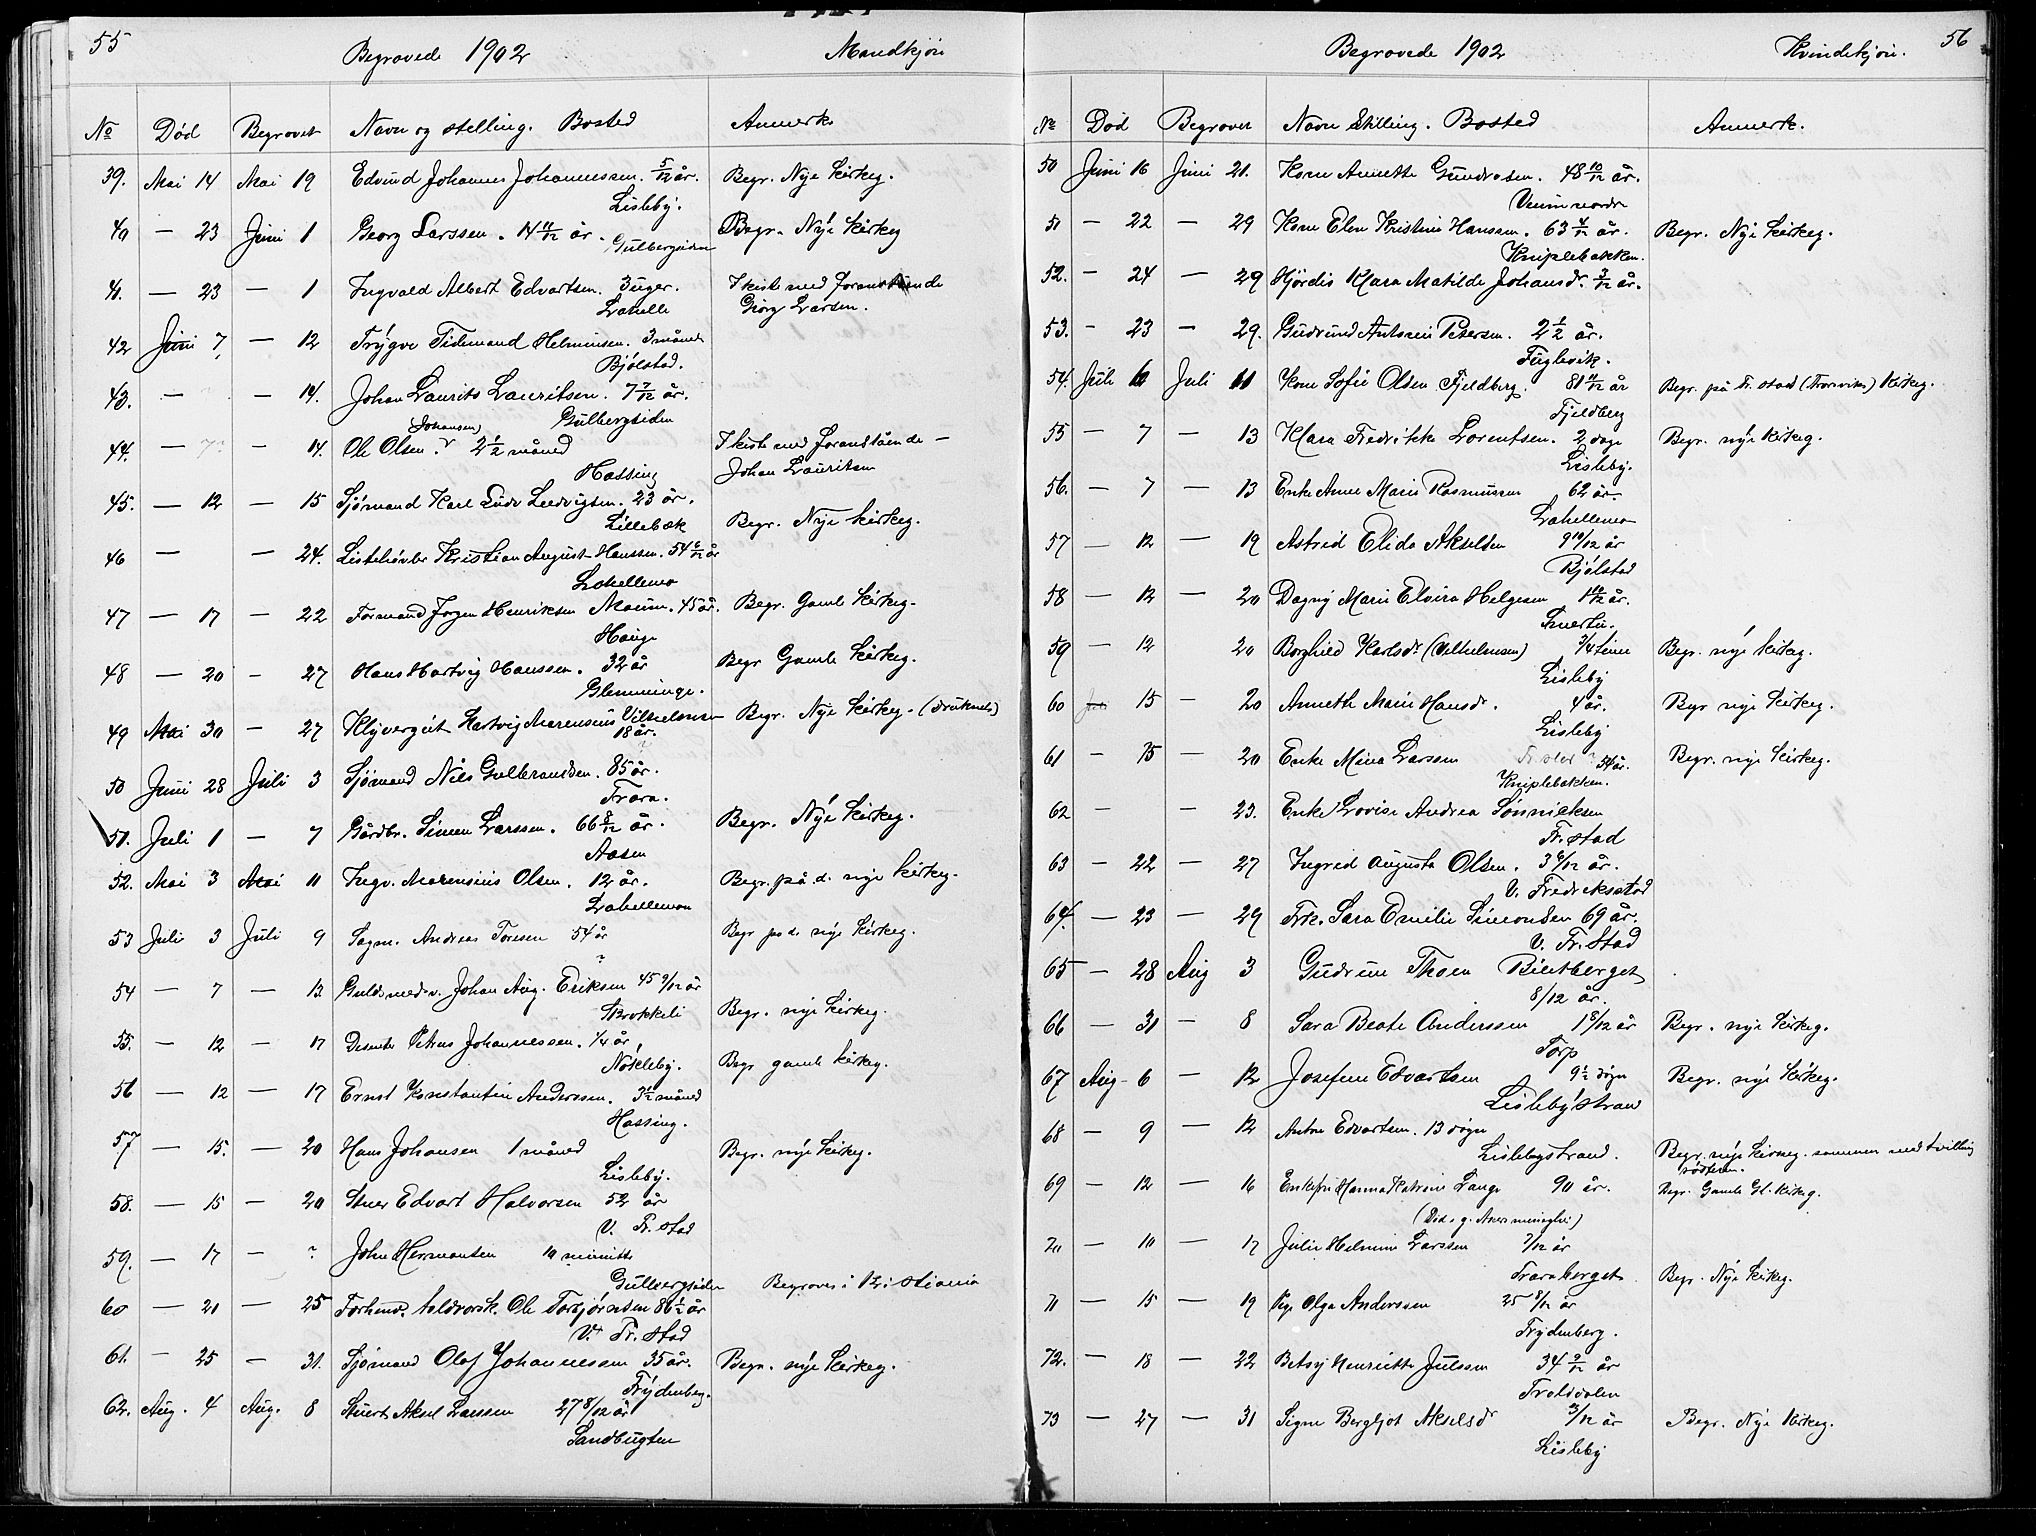 55
Begravede 1902 Mandkjøn
No Død Begravet Navn og stelling. Bosted Anmerk.
39. Mai 14 Mai 19 Edvind Johannes Johannessen. 5/12 år. Begr. Nye Kirkeg.
Lisleby.
40 — 23 Juni 1 Georg Larssen. 14 11/12 år. Begr. Nye Kirkeg
Gulbergsiden
41. — 23 — 1 Ingvald Albert Edvartsen. 3 uger. I kiste med foranstående
Lahelle Georg Larsen.
42 Juni 7 — 12 Trygve Tidemand Helminsen. 3 måned
Bjølstad.
43. — — 14. Johan Laurits Lauritsen. 7 7/12 år.
Gulbergsiden
44. — 7? — 14. Ole Olsen (Johansen) 2 1/2 måned I kiste med foranstående —
Hassing Johan Lauritsen
45. — 12 — 15 Sjømand Karl Ludv Ludvigsen. 23 år.
Lillebæk Begr. Nye kirkeg.
46 — — 24. Kristian August Hanssen. 54 6/12 år
Lahellemo
47 — 17 — 22 Formand Jørgen Henriksen Moum. 45 år. Begr. Gamle Kirkeg.
Hauge
48 — 20 — 27 Hans Hartvig Hanssen. 32 år Begr Gamle Kirkeg.
Glemminge.
49 Mai 30 — 27 Klyvergut Hartvig Marensius Vilhelmsen Begr. Nye Kirkeg. (druknet)
18 år.
50 Juni 28 Juli 3 Sjømand Nils Gulbrandsen. 85 år.
Trara.
51. Juli 1 — 7 Gårdbr. Simen Larssen. 66 8/12 år. Begr. Nye Kirkeg.
Aasen
52. Mai 3 Mai 11 Ingv. Marensius Olsen. 12 år. Begr. på d. nye Kirkeg.
Lahellemoen
53 Juli 3 Juli 9 Sagm. Andreas Toresen 54 år Begr på d. nye Kirkeg.
?
54 — 7 — 13 Guldsmedsv. Johan Aug. Eriksen 45 9/12 år
Brokkeli Begr. nye Kirkeg.
55. — 12 — 17 Petrus Johannessen. 1/4 år
Nøkleby. Begr gamle kirkeg.
56 — 12 — 17 Ernst Konstantin Anderssen. 3 1/2 måned
Hassing.
57 — 15. — 20 Hans Johansen 1 måned Begr. nye Kirkeg.
Lisleby.
58. — 15 — 20 Stuer Edvart Halvorsen 52 år
V. Fr. stad
59. — 17 — ? John Hermansen 10 minutte
Gullbergsiden Begraves i Kristiania
60 — 21 — 25 Forhenv. toldvorsk. Ole Torbjørnsen 86 1/2 år
V. Fr. stad
61. — 25 — 31. Sjømand Olaf Johannessen 35 år. Begr. nye Kirkeg.
Frydenberg.
62. Aug. 4 Aug. 8 Stuert Aksel Larssen 27 8/12 år
Sandbugten
56
Begravede 1902 Kvindekjøn.
No Død Begraven Navn Stilling. Bosted Anmerk.
50 Juni 16 Juni 21. Kone Annette Gundersen. 48 10/12 år.
Veum nordre
51 — 22 — 29 Kone Elen Kristine Hanssen. 63 4/12 år. Begr. Nye Kirkeg.
Kniplebakken.
52. — 24 — 29 Hjørdis Klara Matilde Johansdr. 3/12 år.
53. — 23 — 29. Gudrund Antonie Petersen. 2 1/2 år.
Fuglevik.
54. Juli Juli 11 Kone Sofie Olsen Fjeldberg. 81 11/12 år Begr. på Fr. stad (Trosviks) Kirkeg.
Fjeldberg
55 — 7 — 13 Klara Fredrikke Lorentsen. 2 dage Begr. nye kirkeg.
Lisleby.
56. — 7 — 13 Enke Anne Marie Rasmussen 62 år.
Lahellemo
57 — 12 — 19 Astrid Elida Akselsen 9 10/12 år
Bjølstad
58 — 12 — 20 Dagny Marie Elvira Helgesen 1 10/12 år.
59 — 12 20 Borghild Karlsdr (Vilhelmsen) 3/4 time Begr. nye kirkeg.
Lisleby
60 15 — 20 Anneth Marie Hansdr. 4 år. Begr nye Kirkeg.
Lisleby
61 — 15 — 20 Enke Mina Larssen Fr. stad 54 år. Begr. nye Kirkeg.
Kniplebakken.
62 — 23. Enke Lovise Andrea Sønnicksen
Fr. stad
63 — 22 — 27 Ingrid Augusta Olsen. 3 6/12 år.
V. Fredriksstad
64. — 23 — 29 Frk. Sara Emilie Simonsen 69 år.
V. Fr. Stad
65 — 28 Aug 3 Gudrun Thoen Bientberget
8/12 år.
66 — 31 — 8 Sara Beate Anderssen 1 8/12 år Begr. nye Kirkeg.
Torp
67 Aug. 6 — 12 Josefine Edvartsen 9 1/2 døgn Begr. nye Kirkeg.
Lislebystrand
68 — 9 — 12 Antone Edvartsen. 13 døgn
Lislebystrand. Begr. nye Kirkeg. sammen med tvilling
søsteren.
69 — 12 — 16 Enkefru Hanna Katrine Lange 90 år. Begr. Gamle Gl. Kirkeg.
70 — 10 — 17 Julie Helmine Larssen 7/12 år
Traraberget Begr. Nye Kirkeg.
71 — 15 — 19 Pige Olga Anderssen 25 8/12 år
Frydenberg.
72. — 18 — 22 Betsy Henriette Julssen 34 9/12 år
Troldalen
73 — 27 — 31 Signe Bergljot Akselsdr 3/12 år Begr. Nye Kirkeg.
Lisleby